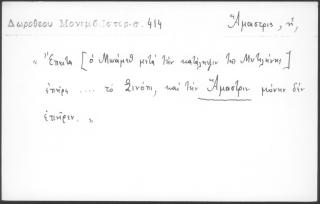 Δωροθέου Μονεμβ. Ἱστορ. σ. 414
Ἄμαστρις, ἡ,
« Ἔπειτα [ὁ Μωάμεθ μετὰ τὴν κατάληψιν τῆς Μυτιλήνης]
ἐπῆρε .... τὸ Σινόπι, καὶ τὴν Ἄμαστριν μόνην δὲν
ἐπῆρεν. »